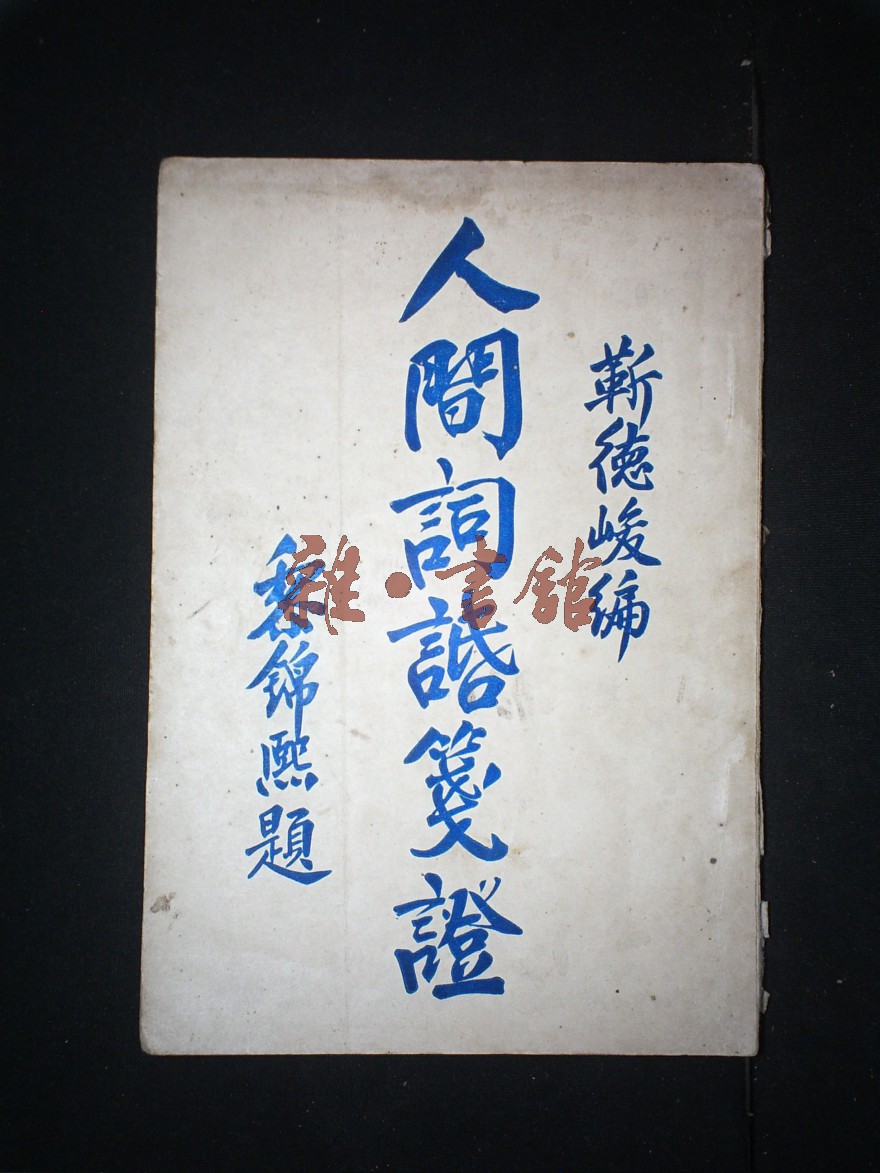 靳德峻编
人間詞話箋證
黎錦熙題
雜·書館